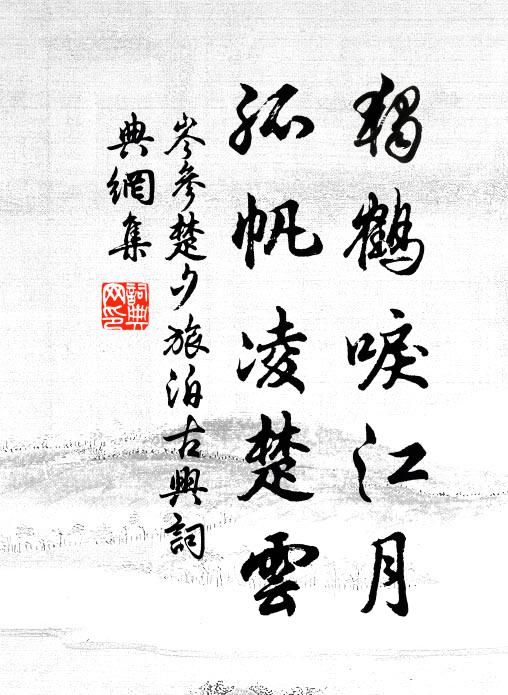 獨鶴唳江月
孤帆凌楚雲
岑參楚夕旅泊古興詞
典網集
詞典
网印